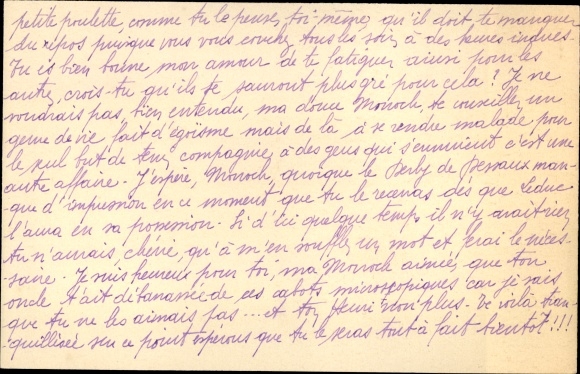 petite poulette, comme tu le penses, toi-même, qu'il doit te manquer
du repos puisque vous vous couchez tous les soirs à des heures indues.
Tu es bien bonne mon amour de te fatiguer ainsi pour les
autres, crois-tu qu'ils te sauront plus gré pour cela? Je ne
voudrais pas, bien entendu, ma douce Monoch, te conseiller un
genre de vie fait d'égoïsme mais de là à se rendre malade pour
le seul but de tenir compagnie à des gens qui s'ennuient c'est une
autre affaire. J'espère, Monoch, quoique le Derby de man-
que d'impression en ce moment que tu le recevras dès que
l'aura en sa possession. Si d'ici quelque temps il n'y avait rien,
tu n'aurais, chérie, qu'à m'en souffler un mot et ferai le néces-
saire. Je suis heureux pour toi, ma Monoch aimée, que ton
oncle t'ait débarrassée de ces cabots microscopiques car je sais
que tu ne les aimais pas... et ton Henri non plus. Te voilà tran-
quillisée sur ce point espérons que tu le seras tout à fait bientôt!!!